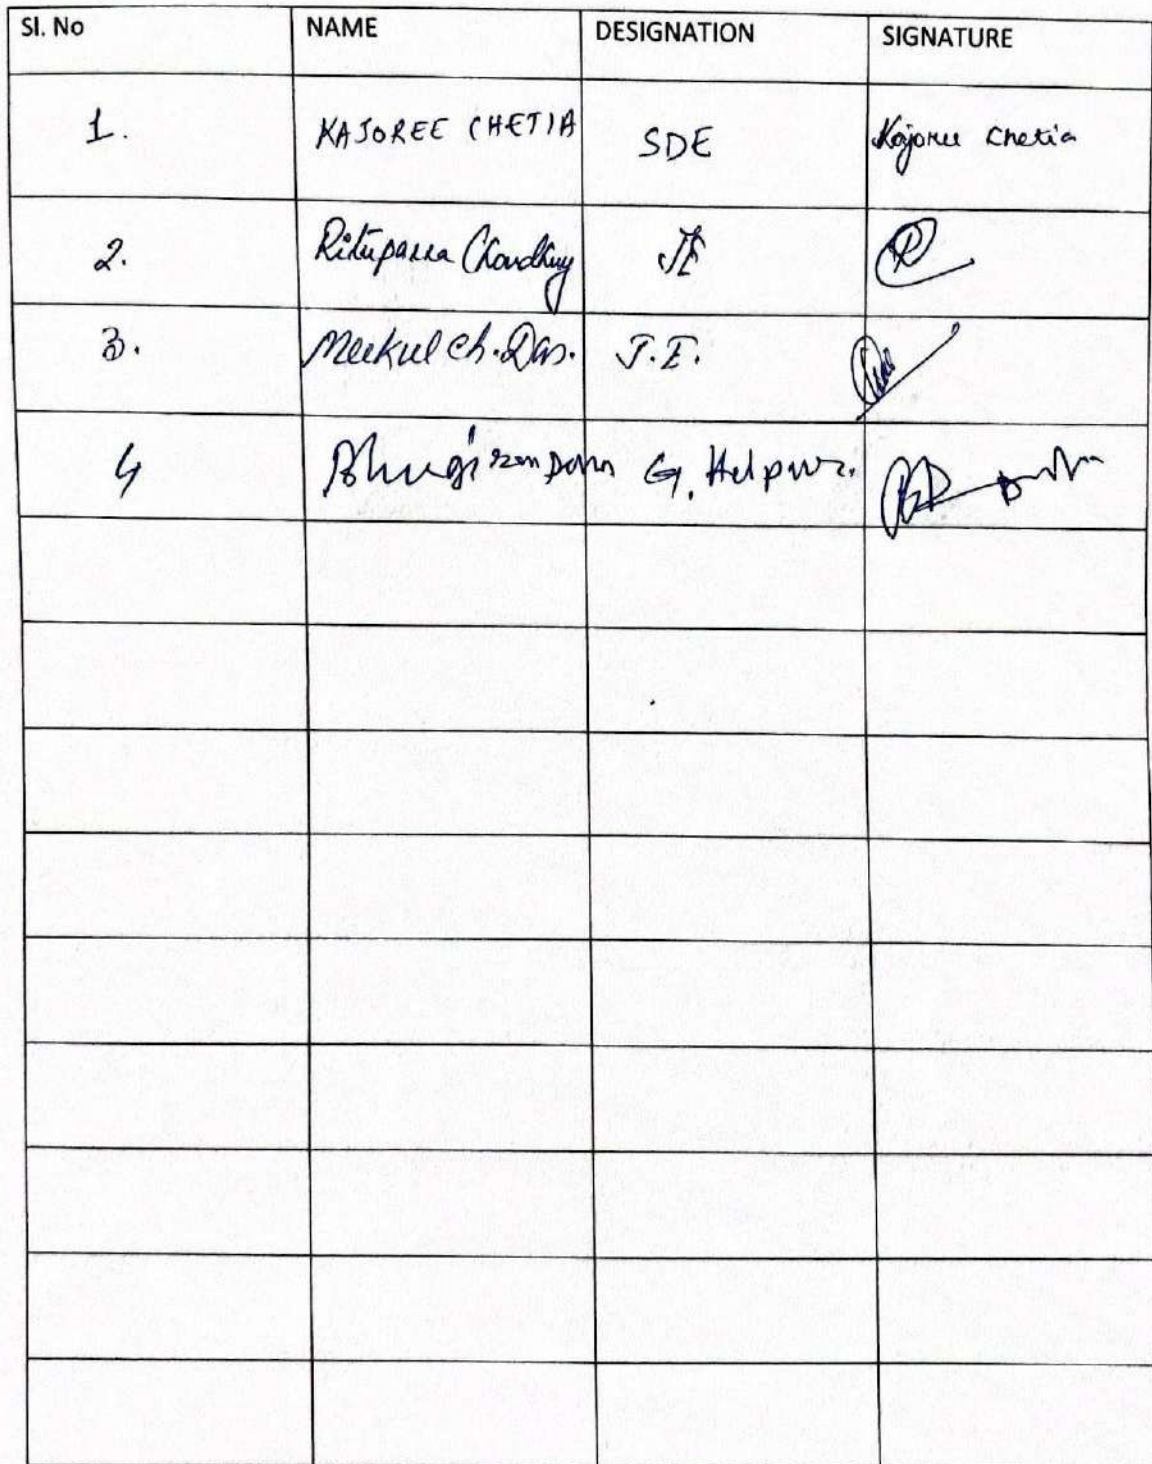 Sl. No NAME DESIGNATION SIGNATURE
1. KAJOREE CHETIA SDE Kajoree Chetia
2. Rituparna Choudhury JE
3. Mukul Ch. Das. J.E.
4 G.